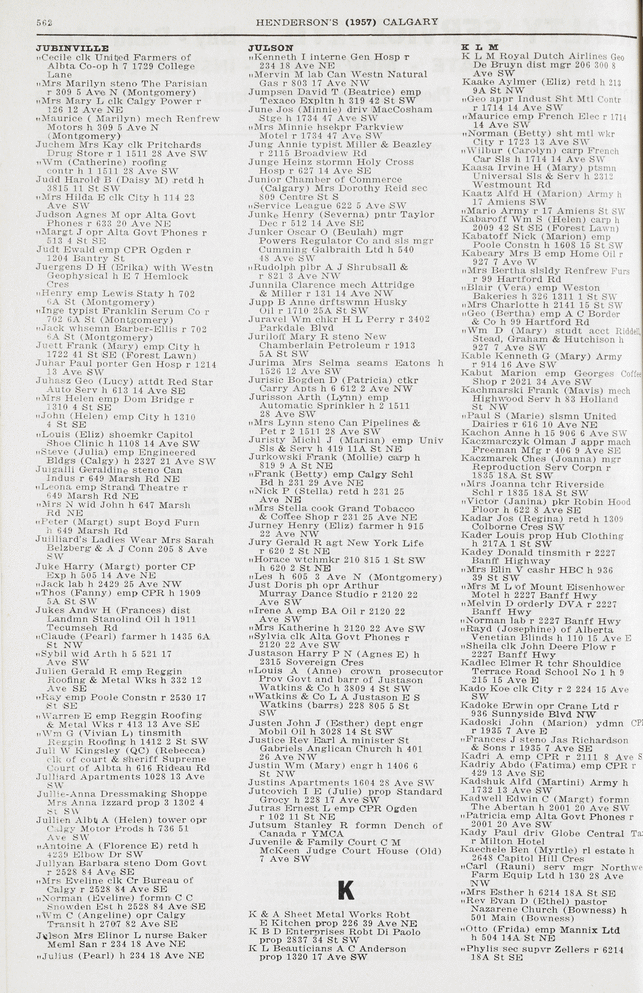 562
HENDERSON'S (1957) CALGARY
JUBINVILLE
„Cecile clk United Farmers of
Albta Co-op h 7 1729 College
Lane
„Mrs Marilyn steno The Parisian
r 309 5 Ave N (Montgomery)
„Mrs Mary L clk Calgy Power r
126 12 Ave NE
„Maurice ( Marilyn) mech Renfrew
Motors h 309 5 Ave N
(Montgomery)
Juchem Mrs Kay clk Pritchards
Drug Store r 1 1511 28 Ave SW
„Wm (Catherine) roofing
contr h 1 1511 28 Ave SW
Judd Harold B (Daisy M) retd h
3815 11 St SW
„Mrs Hilda E clk City h 114 23
Ave SW
Judson Agnes M opr Alta Govt
Phones r 633 20 Ave NE
„Margt J opr Alta Govt Phones r
513 4 St SE
Judt Ewald emp CPR Ogden r
1204 Bantry St
Juergens D H (Erika) with Westn
Geophysical h E 7 Hemlock
Cres
„Henry emp Lewis Staty h 702
6A St (Montgomery)
„Inge typist Franklin Serum Co r
702 6A St (Montgomery)
„Jack whsemn Barber-Ellis r 702
6A St (Montgomery)
Juett Frank (Mary) emp City h
1722 41 St SE (Forest Lawn)
Juhar Paul porter Gen Hosp r 1214
13 Ave SW
Juhasz Geo (Lucy) attdt Red Star
Auto Serv h 613 14 Ave SE
„Mrs Helen emp Dom Bridge r
1310 4 St SE
„John (Helen) emp City h 1310
4 St SE
„Louis (Eliz) shoemkr Capitol
Shoe Clinic h 1108 14 Ave SW
„Steve (Julia) emp Engineered
Bldgs (Calgy) h 2327 21 Ave SW
Juigalli Geraldine steno Can
Indus r 649 Marsh Rd NE
„Leona emp Strand Theatre r
649 Marsh Rd NE
„Mrs N wid John h 647 Marsh
Rd NE
„Peter (Margt) supt Boyd Furn
h 649 Marsh Rd
Juilliard's Ladies Wear Mrs Sarah
Belzberg & A J Conn 205 8 Ave
SW
Juke Harry (Margt) porter CP
Exp h 505 14 Ave NE
„Jack lab h 2429 25 Ave NW
„Thos (Fanny) emp CPR h 1909
5A St SW
Jukes Andw H (Frances) dist
Landmn Stanolind Oil h 1911
Tecumseh Rd
„Claude (Pearl) farmer h 1435 6A
St NW
„Sybil wid Arth h 5 521 17
Ave SW
Julien Gerald R emp Reggin
Roofing & Metal Wks h 332 12
Ave SE
„Ray emp Poole Constn r 2530 17
St SE
„Warren E emp Reggin Roofing
& Metal Wks r 413 13 Ave SE
„Wm G (Vivian L) tinsmith
Reggin Roofing h 1412 2 St SW
Jull W Kingsley (QC) (Rebecca)
clk of court & sheriff Supreme
Court of Albta h 616 Rideau Rd
Julliard Apartments 1028 13 Ave
SW
Jullie-Anna Dressmaking Shoppe
Mrs Anna Izzard prop 3 1302 4
St SW
Jullien Albt A (Helen) tower opr
Calgy Motor Prods h 736 51
Ave SW
„Antoine A (Florence E) retd h
4239 Elbow Dr SW
Jullyan Barbara steno Dom Govt
r 2528 84 Ave SE
„Mrs Eveline clk Cr Bureau of
Calgy r 2528 84 Ave SE
„Norman (Eveline) formn C C
Snowden Est h 2528 84 Ave SE
„Wm C (Angeline) opr Calgy
Transit h 2707 82 Ave SE
Julson Mrs Elinor L nurse Baker
Meml San r 234 18 Ave NE
„Julius (Pearl) h 234 18 Ave NE
JULSON
„Kenneth I interne Gen Hosp r
234 18 Ave NE
„Mervin M lab Can Westn Natural
Gas r 803 17 Ave NW
Jumpsen David T (Beatrice) emp
Texaco Expltn h 319 42 St SW
June Jos (Minnie) driv MacCosham
Stge h 1734 47 Ave SW
„Mrs Minnie hsekpr Parkview
Motel r 1734 47 Ave SW
Jung Annie typist Miller & Beazley
r 2115 Broadview Rd
Junge Heinz stormn Holy Cross
Hosp r 627 14 Ave SE
Junior Chamber of Commerce
(Calgary) Mrs Dorothy Reid sec
809 Centre St S
„Service League 622 5 Ave SW
Junke Henry (Severna) pntr Taylor
Dec r 512 14 Ave SE
Junker Oscar O (Beulah) mgr
Powers Regulator Co and sls mgr
Cumming Galbraith Ltd h 540
48 Ave SW
„Rudolph plbr A J Shrubsall &
r 821 3 Ave NW
Junnila Clarence mech Attridge
& Miller r 131 14 Ave NW
Jupp B Anne drftswmn Husky
Oil r 1710 25A St SW
Juravel Wm chkr H L Perry r 3402
Parkdale Blvd
Juriloff Mary R steno New
Chamberlain Petroleum r 1913
5A St SW
Jurima Mrs Selma seams Eatons h
1526 12 Ave SW
Jurisic Bogden D (Patricia) ctkr
Carry Apts h 6 612 2 Ave NW
Jurisson Arth (Lynn) emp
Automatic Sprinkler h 2 1511
28 Ave SW
„Mrs Lynn steno Can Pipelines &
Pet r 2 1511 28 Ave SW
Juristy Michl J (Marian) emp Univ
Sls & Serv h 419 11A St NE
Jurkowski Frank (Mollie) carp h
819 9 A St NE
„Frank (Betty) emp Calgy Schl
Bd h 231 29 Ave NE
„Nick P (Stella) retd h 231 25
Ave NE
„Mrs Stella cook Grand Tobacco
& Coffee Shop r 231 25 Ave NE
Jurney Henry (Eliz) farmer h 915
22 Ave NW
Jury Gerald R agt New York Life
r 620 2 St NE
„Horace wtchmkr 210 815 1 St SW
h 620 2 St NE
„Les h 605 3 Ave N (Montgomery)
Just Doris ph opr Arthur
Murray Dance Studio r 2120 22
Ave SW
„Irene A emp BA Oil r 2120 22
Ave SW
„Mrs Katherine h 2120 22 Ave SW
„Sylvia clk Alta Govt Phones r
2120 22 Ave SW
Justason Harry P N (Agnes E) h
2315 Sovereign Cres
„Louis A (Anne) crown prosecutor
Prov Govt and barr of Justason
Watkins & Co h 3809 4 St SW
„Watkins & Co L A Justason E S
Watkins (barrs) 228 805 5 St
SW
Justen John J (Esther) dept engr
Mobil Oil h 3028 14 St SW
Justice Rev Earl A minister St
Gabriels Anglican Church h 401
26 Ave NW
Justin Wm (Mary) engr h 1406 6
St NW
Justins Apartments 1604 28 Ave SW
Jutcovich I E (Julie) prop Standard
Grocy h 228 17 Ave SW
Jutras Ernest L emp CPR Ogden
r 102 11 St NE
Jutsum Stanley R formn Dench of
Canada r YMCA
Juvenile & Family Court C M
McKeen Judge Court House (Old)
7 Ave SW
K
K & A Sheet Metal Works Robt
E Kitchen prop 226 39 Ave NE
K B D Enterprises Robt Di Paolo
prop 2837 34 St SW
K L Beauticians A C Anderson
prop 1320 17 Ave SW
K L M
K L M Royal Dutch Airlines Geo
De Bruyn dist mgr 206 300 8
Ave SW
Kaake Aylmer (Eliz) retd h 213
9A St NW
„Geo appr Indust Sht Mtl Contr
r 1714 14 Ave SW
„Maurice emp French Elec r 1714
14 Ave SW
„Norman (Betty) sht mtl wkr
City r 1723 13 Ave SW
„Wilbur (Carolyn) carp French
Car Sls h 1714 14 Ave SW
Kaasa Irvine H (Mary) ptsmn
Universal Sls & Serv h 2312
Westmount Rd
Kaatz Alfd H (Marion) Army h
17 Amiens SW
„Mario Army r 17 Amiens St SW
Kabaroff Wm S (Helen) carp h
2009 42 St SE (Forest Lawn)
Kabatoff Nick (Marion) emp
Poole Constn h 1608 15 St SW
Kabeary Mrs B emp Home Oil r
927 7 Ave W
„Mrs Bertha slsldy Renfrew Furs
r 99 Hartford Rd
„Blair (Vera) emp Weston
Bakeries h 326 1311 1 St SW
„Mrs Charlotte h 2141 15 St SW
„Geo (Bertha) emp A C Border
& Co h 99 Hartford Rd
„Wm D (Mary) studt acct Riddell,
Stead, Graham & Hutchison h
927 7 Ave SW
Kable Kenneth G (Mary) Army
r 914 16 Ave SW
Kabut Marion emp Georges Coffee
Shop r 2021 34 Ave SW
Kachmarski Frank (Mavis) mech
Highwood Serv h 83 Holland
St NW
„Paul S (Marie) slsmn United
Dairies r 616 10 Ave NE
Kachon Anne h 15 906 6 Ave SW
Kaczmarczyk Olman J appr mach
Freeman Mfg r 406 9 Ave SE
Kaczmarek Ches (Joanna) mgr
Reproduction Serv Corpn r
1835 18A St SW
„Mrs Joanna tchr Riverside
Schl r 1835 18A St SW
„Victor (Janina) pkr Robin Hood
Floor h 622 8 Ave SE
Kadar Jos (Regina) retd h 1309
Colborne Cres SW
Kader Louis prop Hub Clothing
h 217A 1 St SW
Kadey Donald tinsmith r 2227
Banff Highway
„Mrs Elin V cashr HBC h 936
39 St SW
„Mrs M L of Mount Eisenhower
Motel h 2227 Banff Hwy
„Melvin D orderly DVA r 2227
Banff Hwy
„Norman lab r 2227 Banff Hwy
„Rayd (Josephine) of Alberta
Venetian Blinds h 110 15 Ave E
„Sheila clk John Deere Plow r
2227 Banff Hwy
Kadlec Elmer R tchr Shouldice
Terrace Road School No 1 h 9
215 15 Ave E
Kado Koe clk City r 2 224 15 Ave
SW
Kadoke Erwin opr Crane Ltd r
936 Sunnyside Blvd NW
Kadoski John (Marion) ydmn CPR
r 1935 7 Ave E
„Frances J steno Jas Richardson
& Sons r 1935 7 Ave SE
Kadri A emp CPR r 2111 8 Ave S
Kadriy Abdo (Fatima) emp CPR r
429 13 Ave SE
Kadshuk Alfd (Martini) Army h
1732 13 Ave SW
Kadwell Edwin C (Margt) formn
The Abertan h 2001 20 Ave SW
„Patricia emp Alta Govt Phones r
2001 20 Ave SW
Kady Paul driv Globe Central Ta
r Milton Hotel
Kaechele Ben (Myrtle) rl estate h
2648 Capitol Hill Cres
„Carl (Rauni) serv mgr Northwe
Farm Equip Ltd h 130 28 Ave
NW
„Mrs Esther h 6214 18A St SE
„Rev Evan D (Ethel) pastor
Nazarene Church (Bowness) h
501 Main (Bowness)
„Otto (Frida) emp Mannix Ltd
h 504 14A St NE
„Phylis sec supvr Zellers r 6214
18A St SE